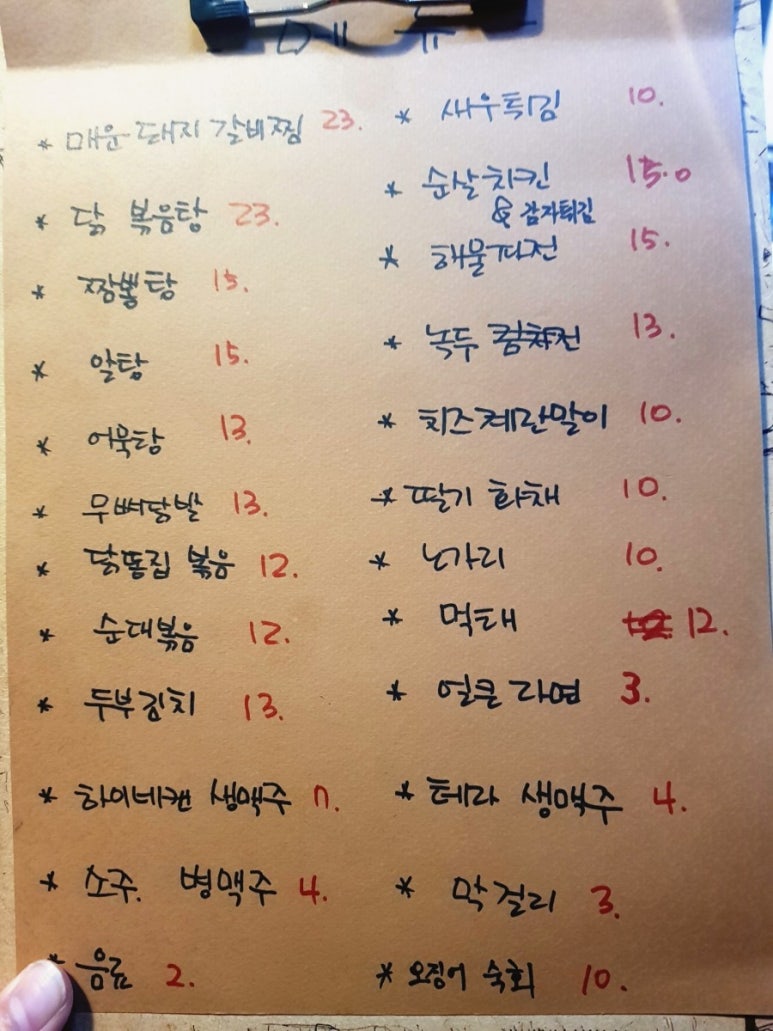 메뉴
* 매운돼지 갈비찜 23.
* 닭 볶음탕 23.
* 짬뽕탕 15.
* 알탕 15.
* 어묵탕 13.
* 무뼈닭발 13.
* 닭똥집 볶음 12.
* 순대볶음 12.
* 두부김치 13.
* 하이네캔 생맥주 7.
* 소주. 병맥주 4.
* 음료 2.
* 새우튀김 10.
* 순살치킨 15.0
& 감자튀김
* 해물파전 15.
* 녹두 김치전 13.
* 치즈계란말이 10.
* 딸기 화채 10.
* 노가리 10.
* 먹태 12.
* 얼큰라면 3.
* 테라 생맥주 4.
* 막걸리 3.
* 오징어 숙회 10.